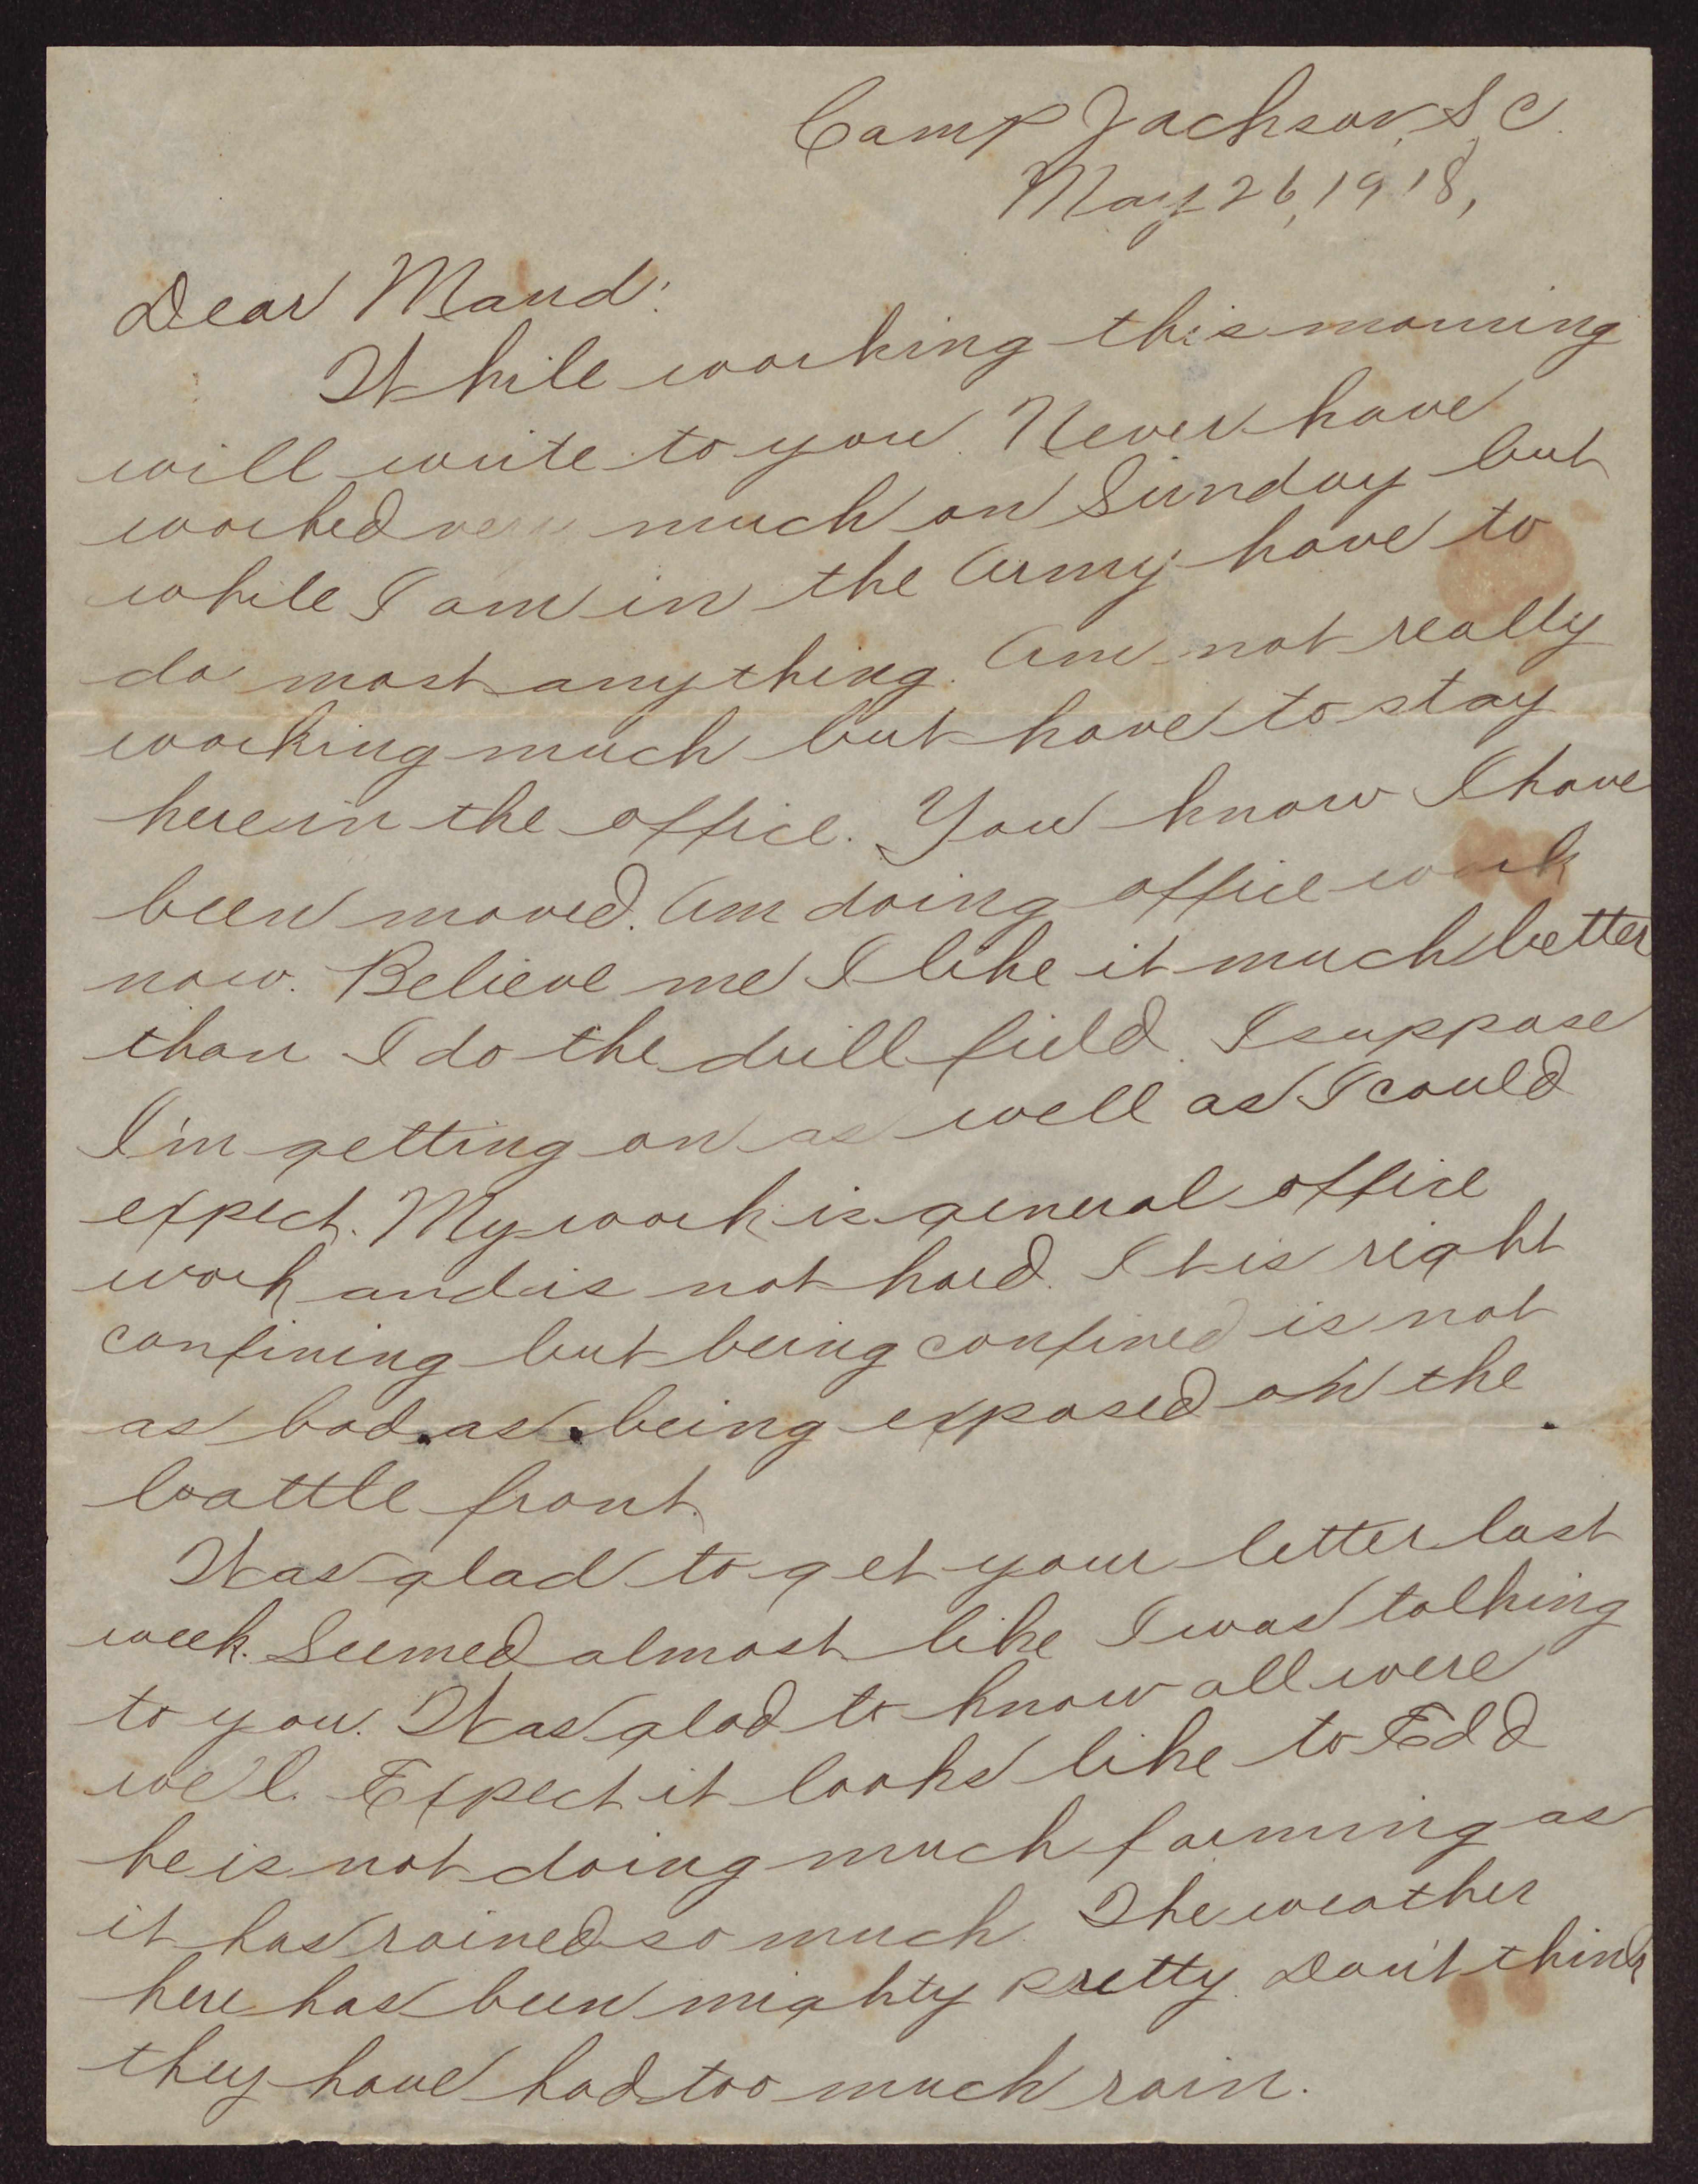 Camp Jackson, S C.
May 26, 1918,
Dear Maud:
While working this morning
will write to you. Never have
worked very much on Sunday but
while I am in the Army have to
do most anything. Am not really
working much but have to stay
here in the office. You know I have
been moved. Am doing office work
now. Believe me I like it much better
than I do the drill field. I suppose
I'm getting on as well as I could
expect. My work is general office
work and is not hard. It is right
confining but being confined is not
as bad as being exposed on the
battle front.
Was glad to get your letter last
week. Seemed almost like I was talking
to you. Was glad to know all were
well. Expect it looks like to Edd
he is not doing much farming as
it has rained so much. The weather
here has been mighty pretty. Don't think
they have had too much rain.